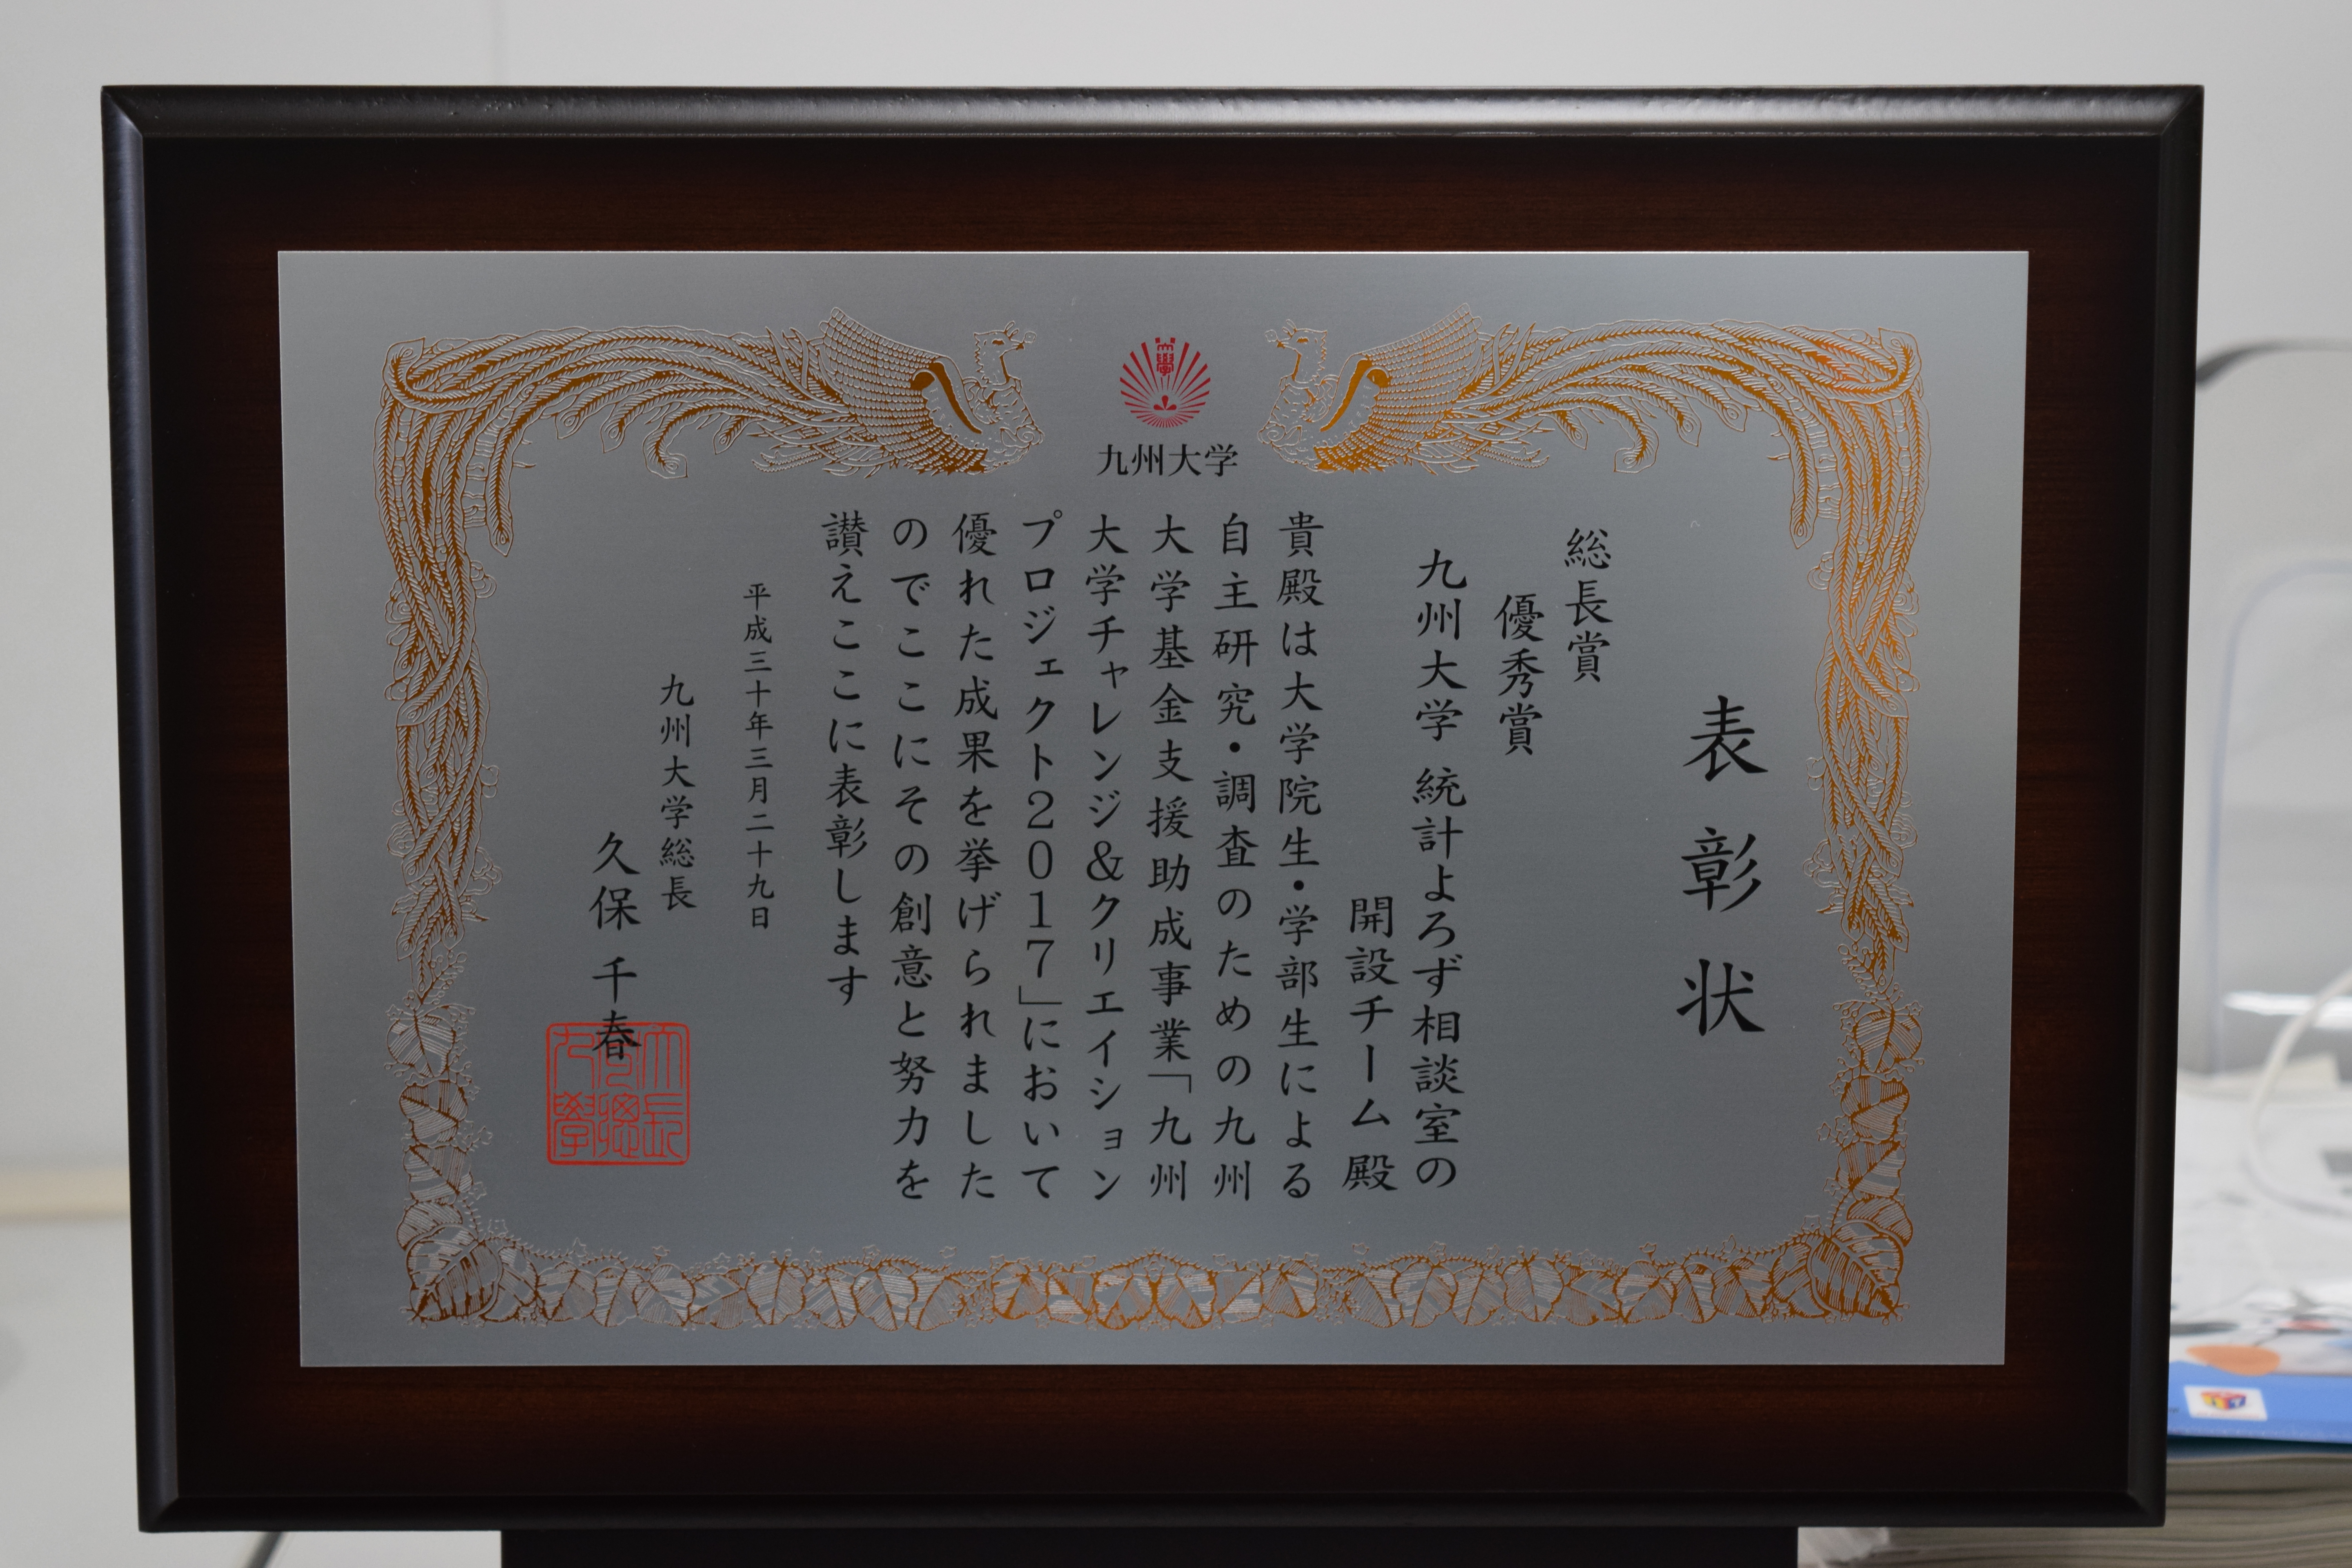 九州大学
表彰状
総長賞
優秀賞
九州大学 統計よろず相談室の
開設チーム 殿
貴殿は大学院生・学部生による
自主研究・調査のための九州
大学基金支援助成事業「九州
大学チャレンジ＆クリエイション
プロジェクト２０１７」において
優れた成果を挙げられました
のでここにその創意と努力を
讃えここに表彰します
平成三十年三月二十九日
九州大学総長
久保 千春